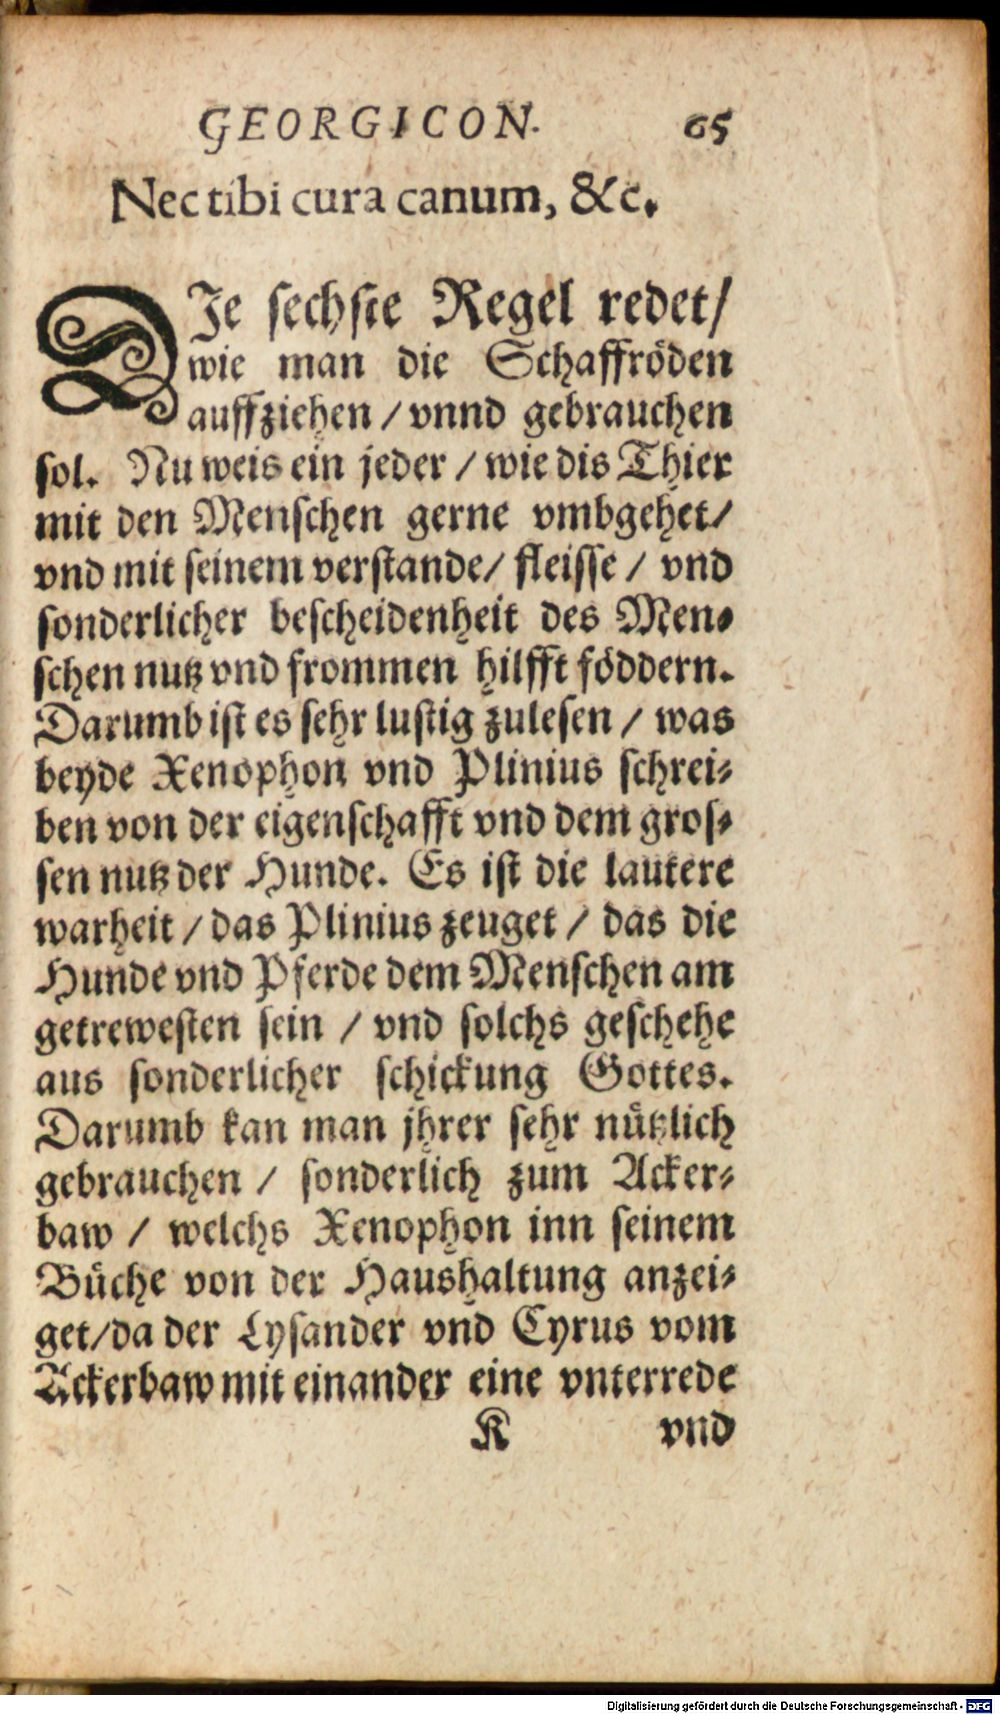 GEORGICON. 65
Nec tibi cura canum, &c.
DIe sechste Regel redet/
wie man die Schaffröden
auffziehen / vnnd gebrauchen
sol. Nu weis ein jeder / wie dis Thier
mit den Menschen gerne vmbgehet/
vnd mit seinem verstande/ fleisse / vnd
sonderlicher bescheidenheit des Men-
schen nutz vnd frommen hilfft föddern.
Darumb ist es sehr lustig zulesen / was
beyde Xenophon vnd Plinius schrei-
ben von der eigenschafft vnd dem gros-
sen nutz der Hunde. Es ist die lautere
warheit / das Plinius zeuget / das die
Hunde vnd Pferde dem Menschen am
getrewesten sein / vnd solchs geschehe
aus sonderlicher schickung Gottes.
Darumb kan man jhrer sehr nützlich
gebrauchen / sonderlich zum Acker-
baw / welchs Xenophon inn seinem
Büche von der Haushaltung anzei-
get/da der Lysander vnd Cyrus vom
Ackerbaw mit einander eine vnterrede
K vnd
Digitalisierung gefördert durch die Deutsche Forschungsgemeinschaft - DFG